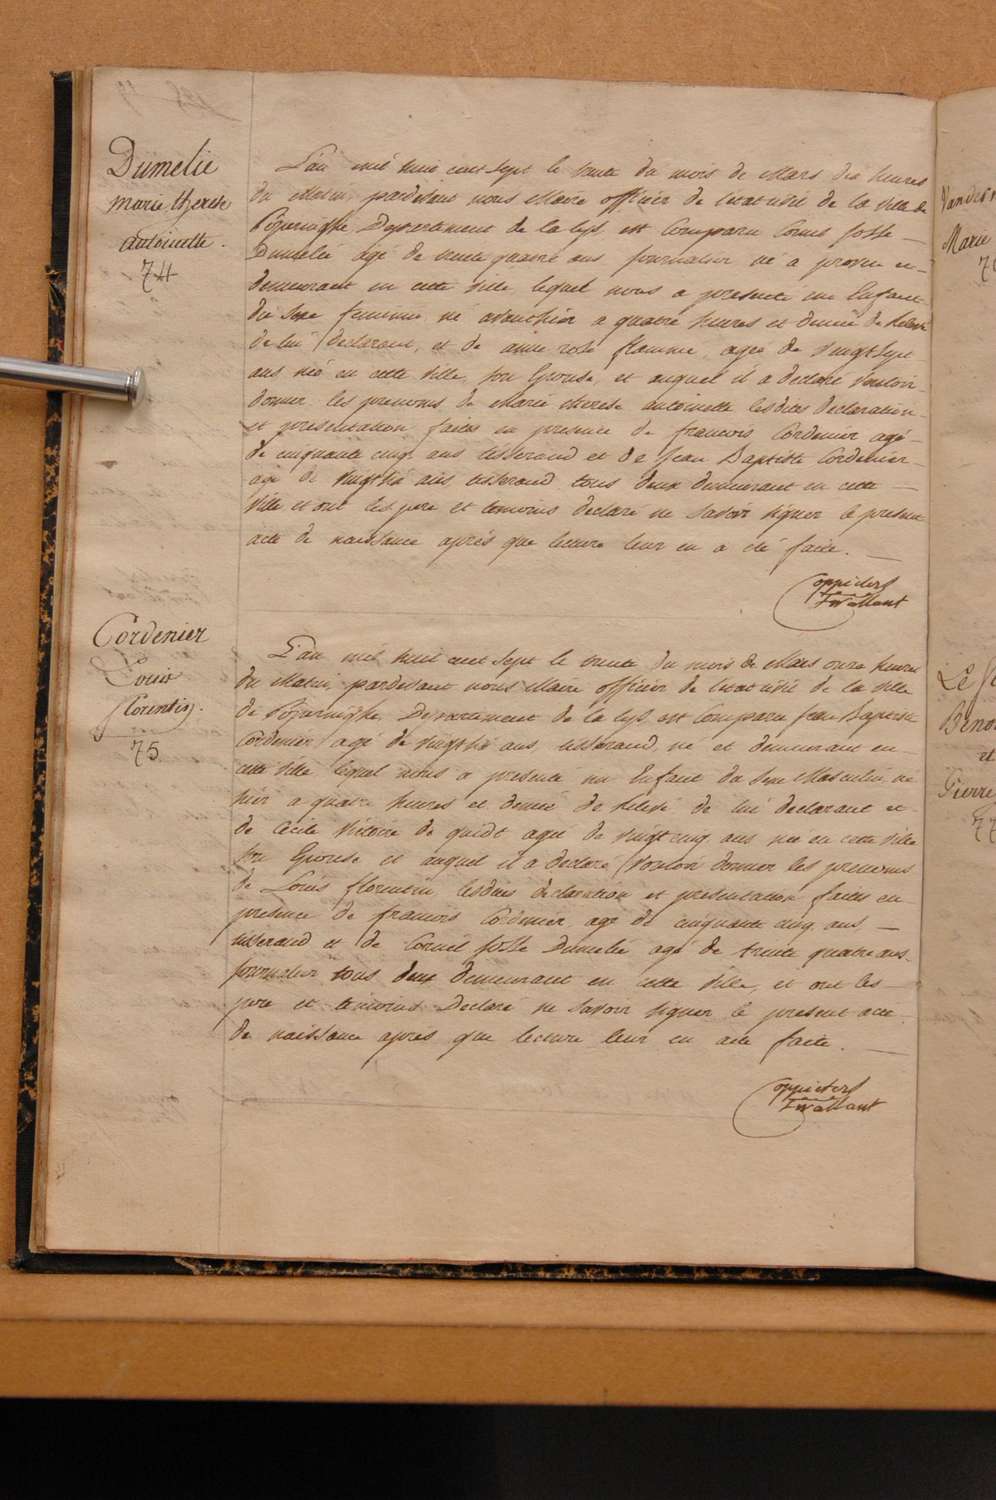 Dumelie
marie therese
antoinette.
74
L'an mil huit cent sept le trente du mois de Mars dix heures
du Matin, pardevant nous Maire officier de l'etat civil de la ville de
Departement de la lys, est Comparu Cornil josse
Dumelié agé de trente quatre ans, journalier né a proven
demeurant en cette ville lequel nous a presenté une Enfant
du Sexe feminin né avanthier a quatre heures et demie de
de lui declarant, et de anne rose flamme, agée de vingt sept
ans née en cette ville, son Epouse, et auquel il a declaré vouloir
donner les prenoms de Marie therese antoinette lesdites declaration
et presentation faites en presence de francois Cordenier agé
de cinquante cinq ans tisserand et de Jean Baptiste Cordenier
agé de vingt six ans tisserand tous deux demeurant en cette
ville et ont les pere et temoins declaré ne savoir signer le present
acte de naissance après que lecture leur en a été faite.
Coppieters
Cordenier
Louis
florentin.
75
L'an mil huit cent sept le trente du mois de Mars onze heures
du Matin, pardevant nous Maire officier de l'etat civil de la ville
de Departement de la lys, est Comparu Jean Baptiste
Cordenier agé de vingt six ans, tisserand, né et demeurant en
cette ville lequel nous a presenté un Enfant du Sexe Masculin né
hier a quatre heures et demie de de lui declarant et
de Cecile Victoire de quidt agée de vingt cinq ans née en cette ville
son Epouse et auquel il a declaré vouloir donner les prenoms
de Louis florentin lesdites declaration et presentation faites en
presence de francois Cordenier agé de cinquante cinq ans
tisserand et de Cornil josse Dumelie agé de trente quatre ans
journalier tous deux demeurant en cette ville, et ont les
pere et temoins Declaré ne savoir signer le present acte
de naissance après que lecture leur en a été faite.
Coppieters
Marie
et
Pierre
77